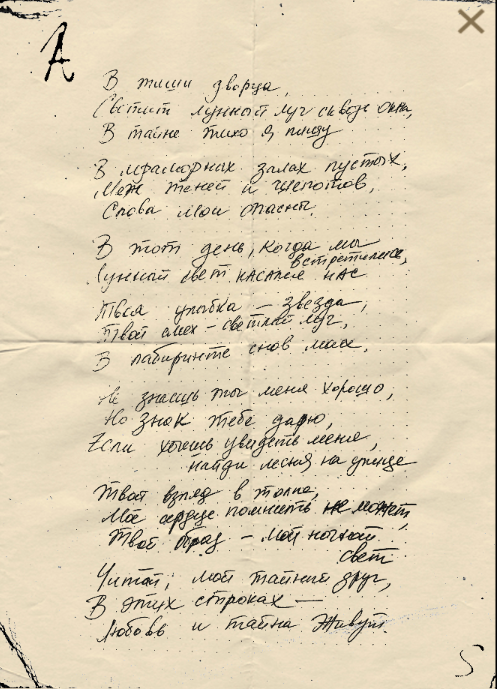 А
В тиши дворца,
Светит лунный луч сквозь окна,
В тайне тихо я пишу
В мраморных залах пустых,
Меж теней и шепотов,
Слова мои опасны.
В тот день, когда мы
встретились,
Лунный свет касался нас
Твоя улыбка – звезда,
Твой смех – светлый луч,
В лабиринте снов моих.
Не знаешь ты меня хорошо,
Но знак тебе дарю,
Если хочешь увидеть меня,
найди на улице
Твой взгляд в толпе,
Мое сердце помнить не может,
Твой образ – мой ночной
свет
Читай, мой тайный друг,
В этих строках —
Любовь и тайна живут.
5